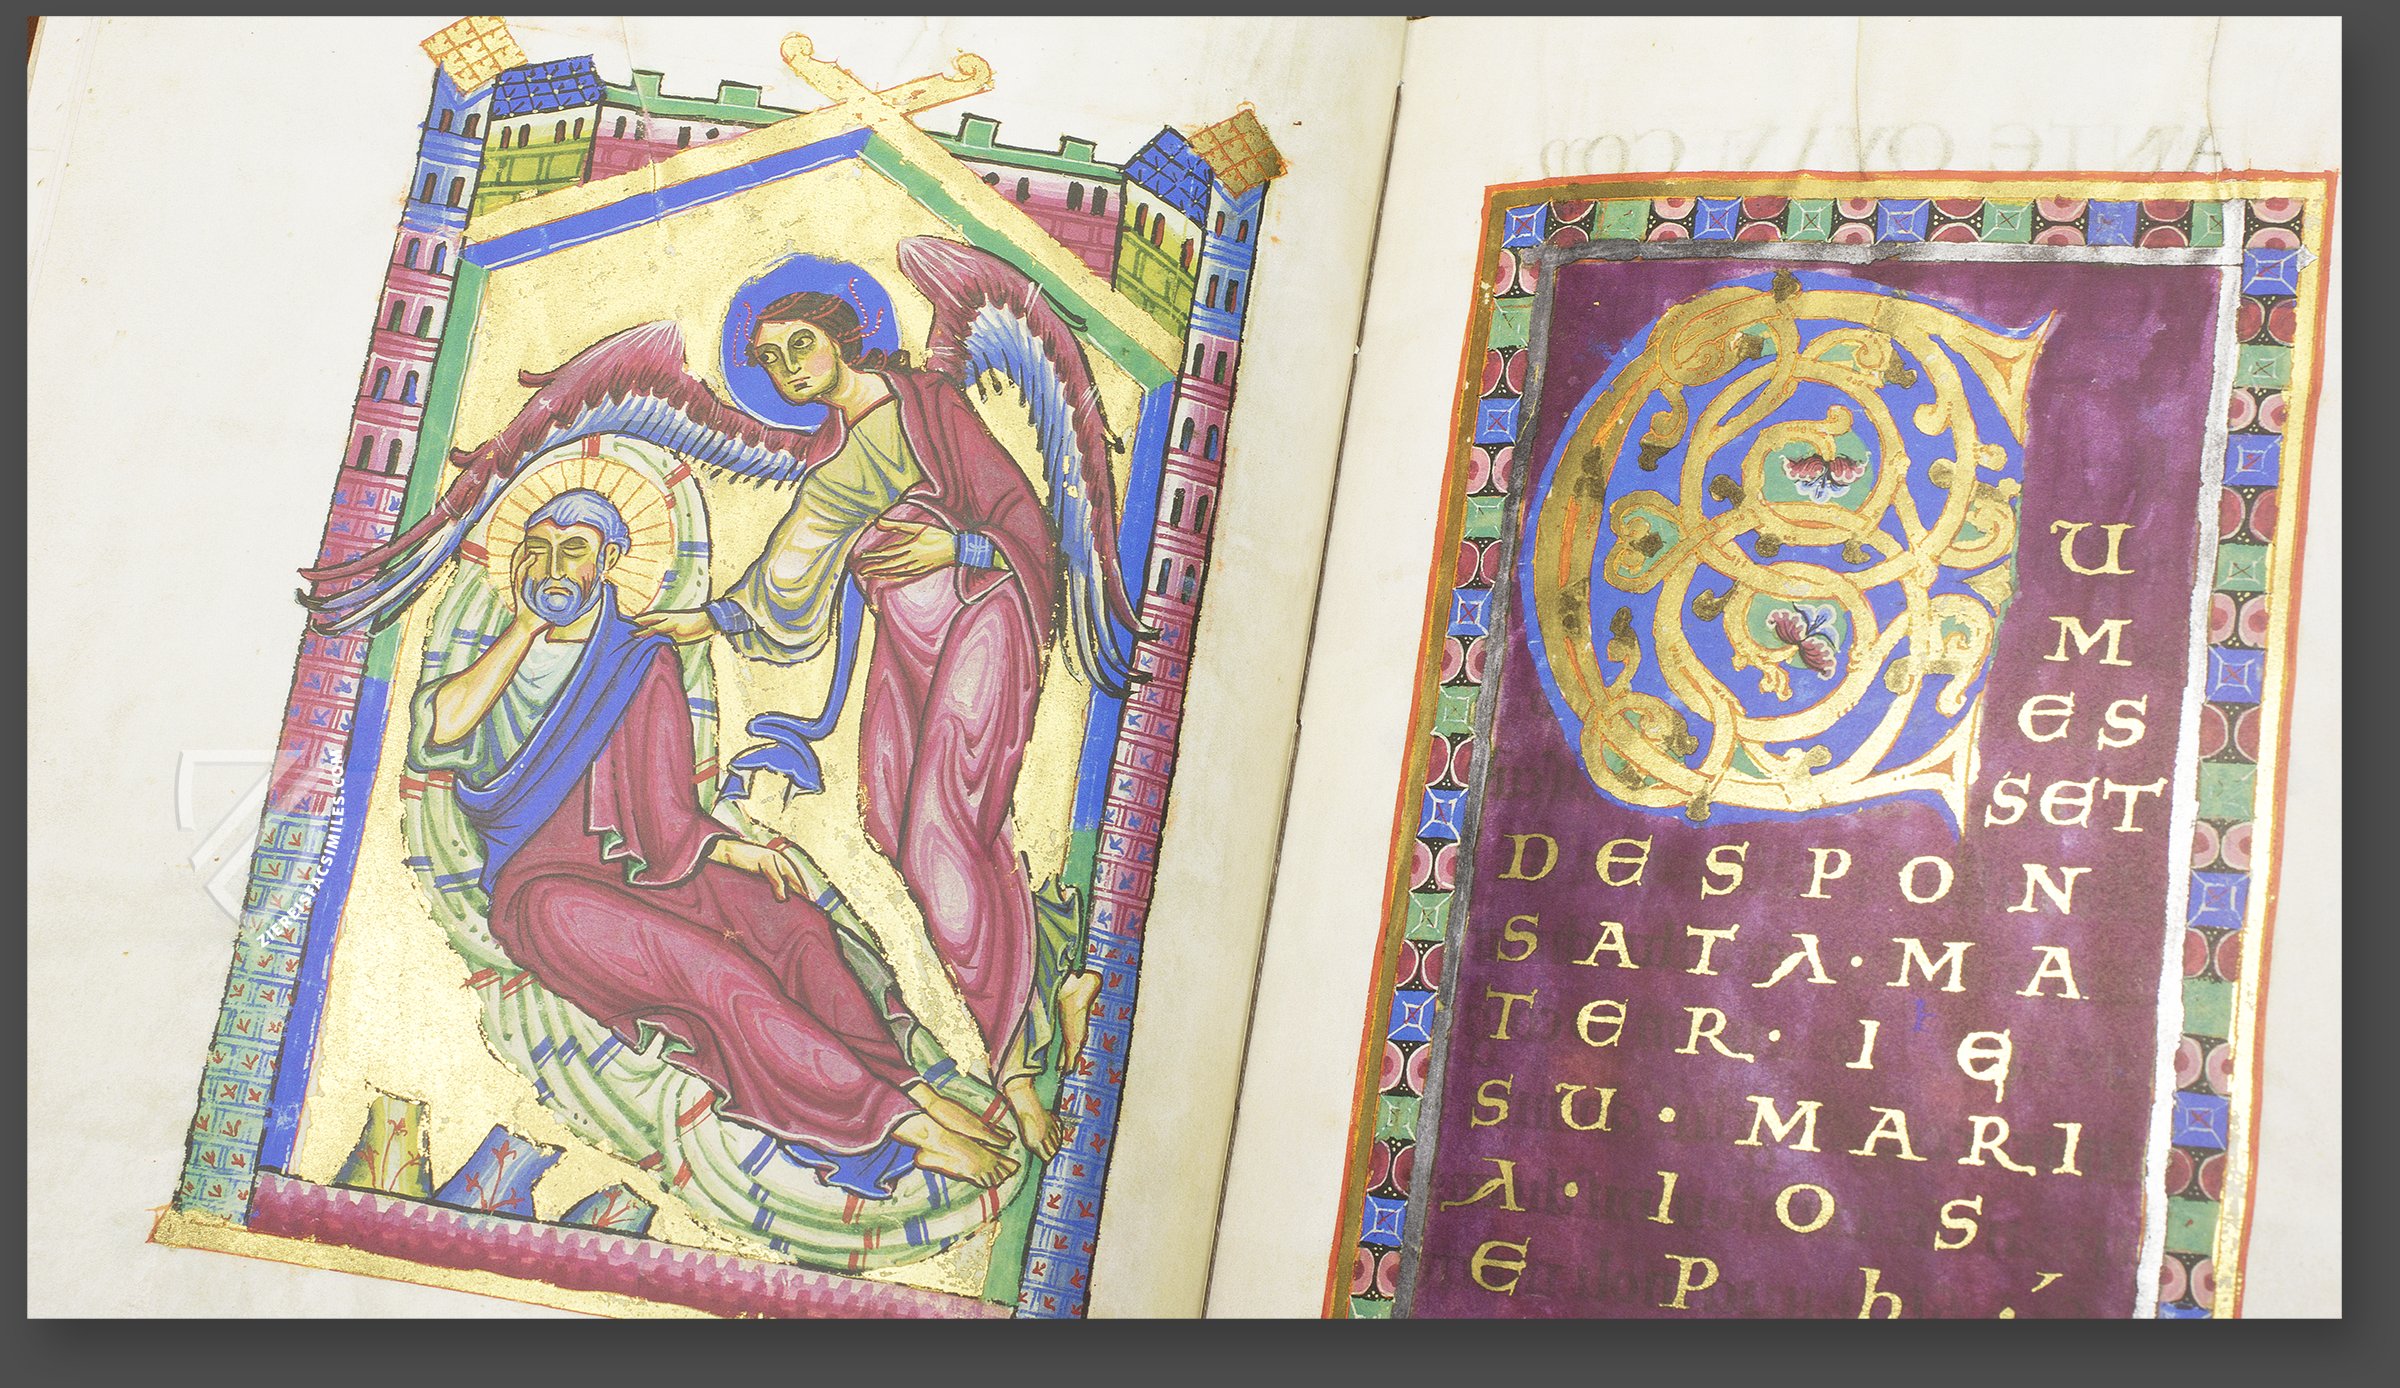 ZIEREISFACSIMILES.COM
C
U
M
ES
SET
DESPON
SATA·MA
TER·IE
SU·MARI
A·IOS
EPh·